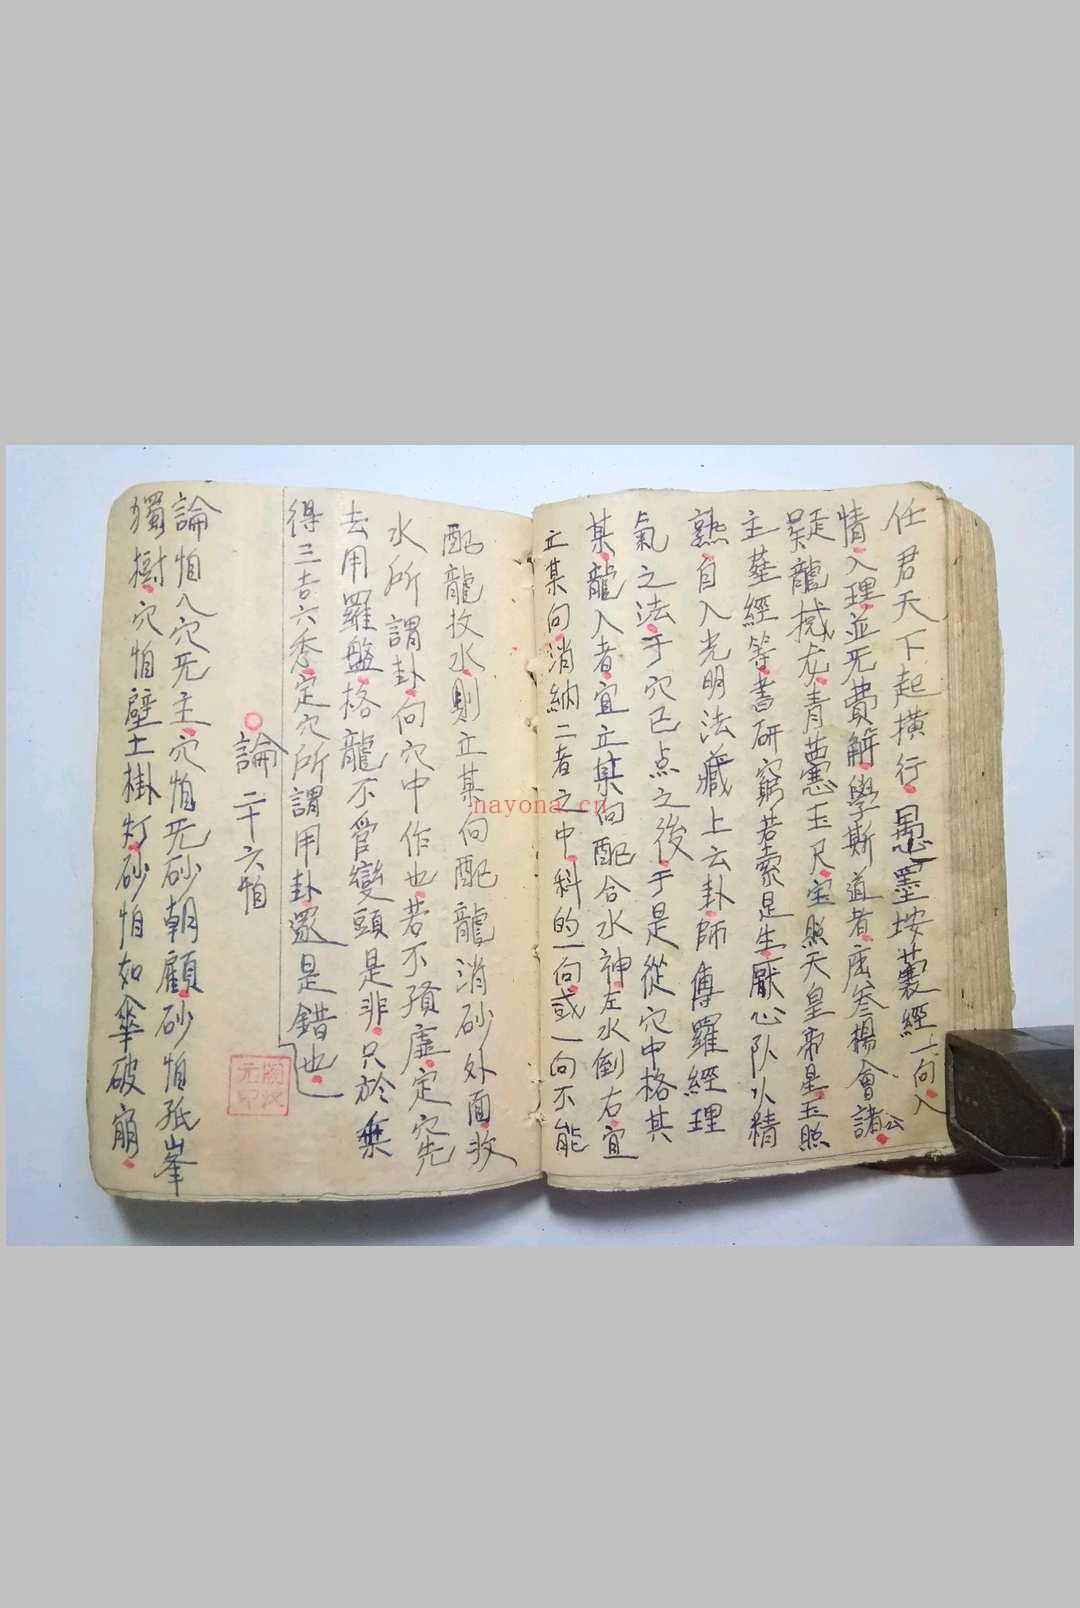 任君天下起橫行愚墨按囊經一向入
情入理並旡費解學斯道者庶叅楊會諸公
疑龍撼龙青囊玉尺宝照天皇帝星玉照
主塟經等書研窮若索是生厭心队以精
熟自入光明法藏上云卦師傅羅經理
氣之法于穴已点之後于是從穴中格其
某龍入者宜立某向配合水神左水倒右宜
立某向消納二者之中科的一向或一向不能
配龍收水則立某向配龍消砂外面收
水所謂卦向穴中作也若不預虛定穴先
去用羅盤格龍不管變頭是非只於乘
得三吉六秀定穴所謂用卦還是錯也
論二十六怕
論怕入穴旡主穴怕旡砂朝顧砂怕孤峯
獨樹穴怕壁土掛灯砂怕如傘破崩
nayona.cn